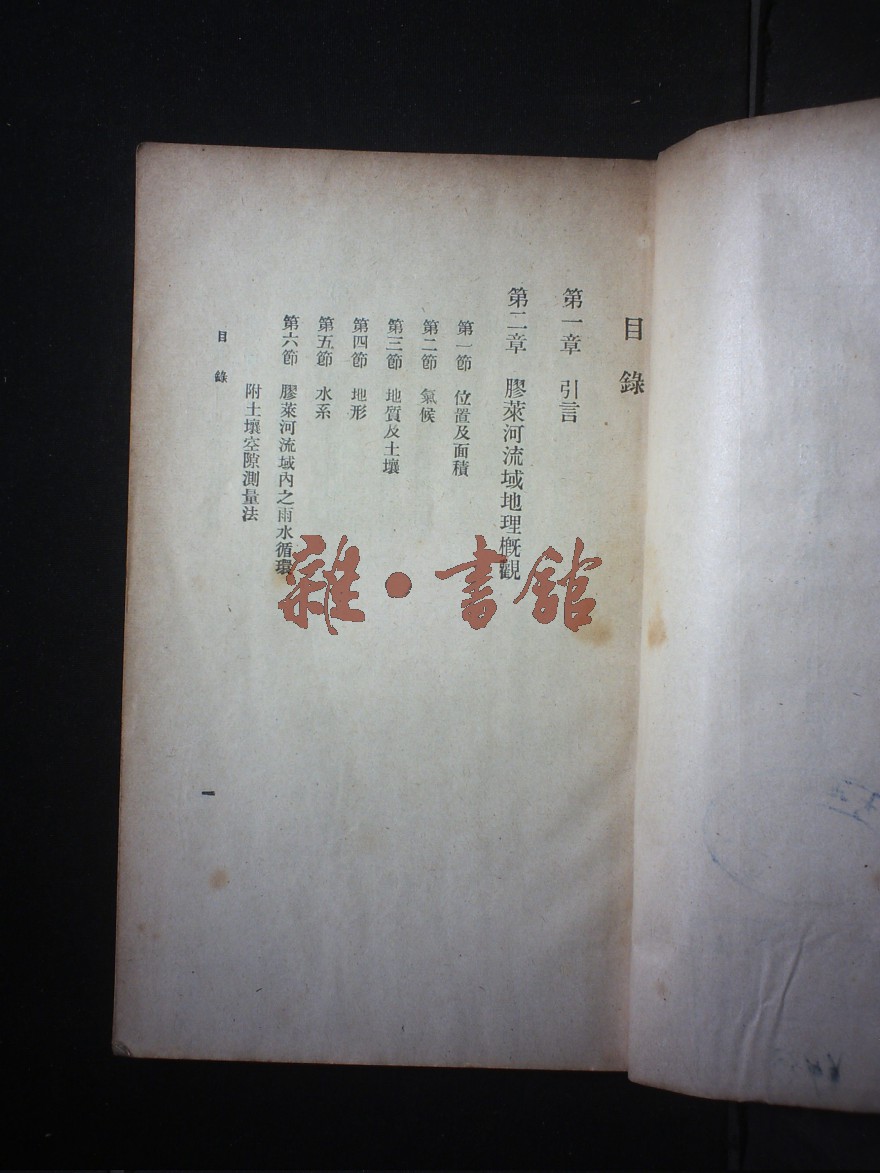 目錄
第一章 引言
第二章 膠萊河流域地理概觀
第一節 位置及面積
第二節 氣候
第三節 地質及土壤
第四節 地形
第五節 水系
第六節 膠萊河流域內之雨水循環
附土壤空隙測量法
目錄
一
雜·書館